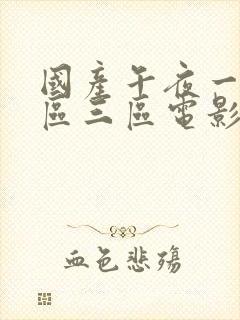 國產午夜一
區三區電影
血色悲殤